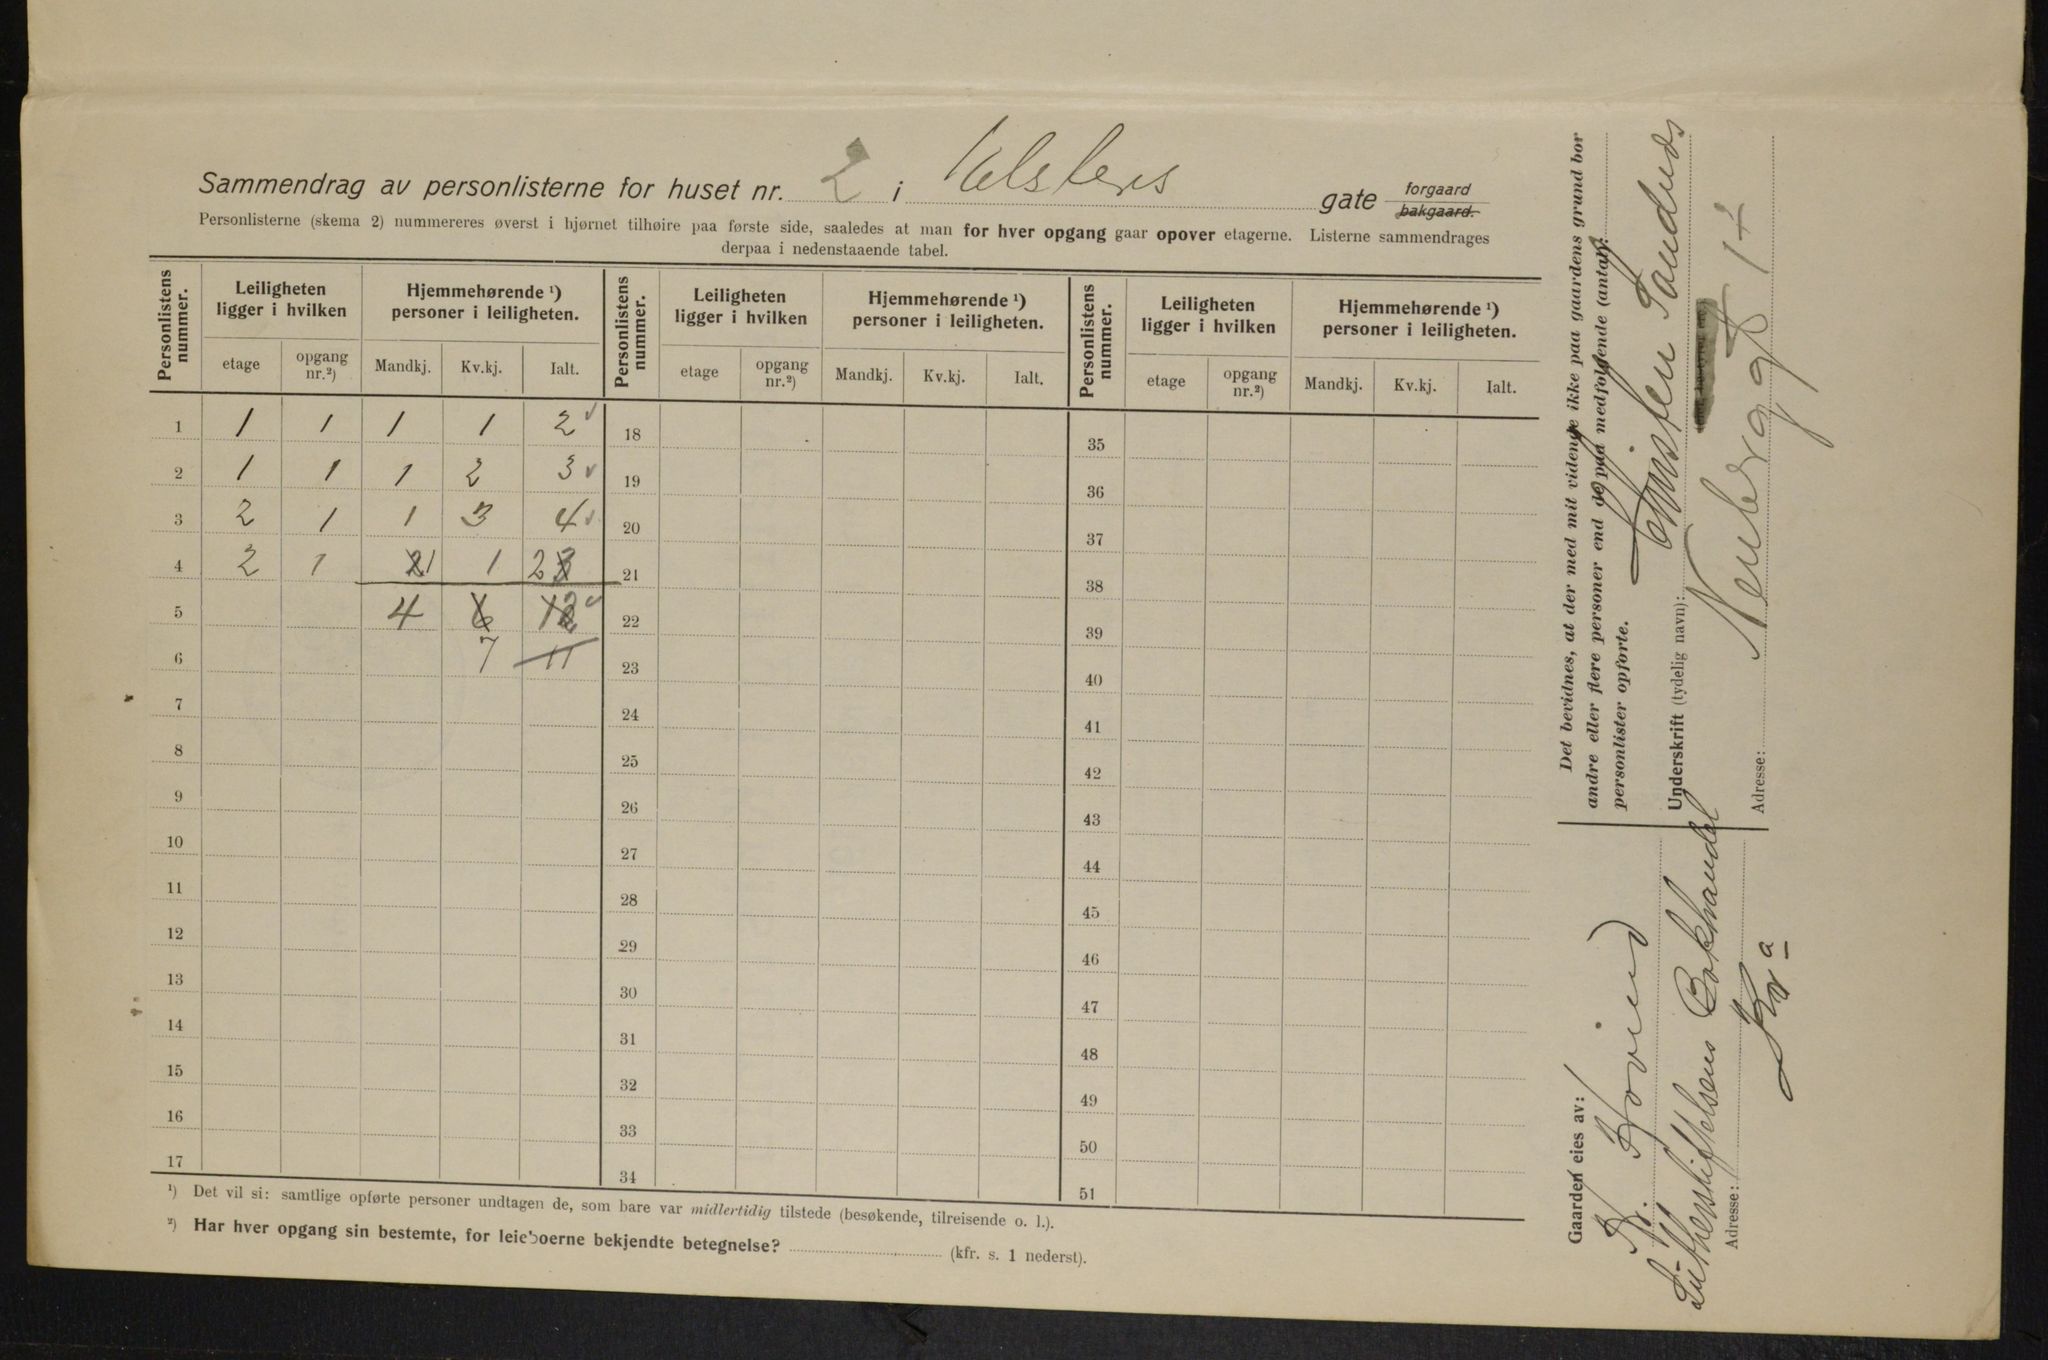 Sammendrag av personlisterne for huset nr. 2 i Kelsters gate forgaard bakgaard.
Personlisterne (skema 2) nummereres øverst i hjørnet tilhøire paa første side, saaledes at man for hver opgang gaar opover etagerne. Listerne sammendrages
derpaa i nedenstaaende tabel.
Personlistens nummer. Leiligheten ligger i hvilken Hjemmehørende ¹) personer i leiligheten. Personlistens nummer. Leiligheten ligger i hvilken Hjemmehørende ¹) personer i leiligheten. Personlistens nummer. Leiligheten ligger i hvilken Hjemmehørende ¹) personer i leiligheten.
etage opgang nr.²) Mandkj. Kv.kj. Ialt. etage opgang nr.²) Mandkj. Kv.kj. Ialt. etage opgang nr.²) Mandkj. Kv.kj. Ialt.
1 1 1 1 1 2 18 35
2 1 1 1 2 3 19 36
3 2 1 1 3 4 20 37
4 2 1 2 1 1 2 3 21 38
5 4 6 12 22 39
6 7 11 23 40
7 24 41
8 25 42
9 26 43
10 27 44
11 28 45
12 29 46
13 30 47
14 31 48
15 32 49
16 33 50
17 34 51
¹) Det vil si: samtlige opførte personer undtagen de, som bare var midlertidig tilstede (besøkende, tilreisende o. l.).
²) Har hver opgang sin bestemte, for leieboerne bekjendte betegnelse? (kfr. s. 1 nederst).
Det bevidnes, at der med mit vidende ikke paa gaardens grund bor
andre eller flere personer end de paa medfølgende (antal):
personlister opførte.
Underskrift (tydelig navn): Christen
Adresse: Neuberggt 14
Gaarden eies av:
Kr. Hovind
Lutherstiftelsens Bokhandel
Adresse: Kra